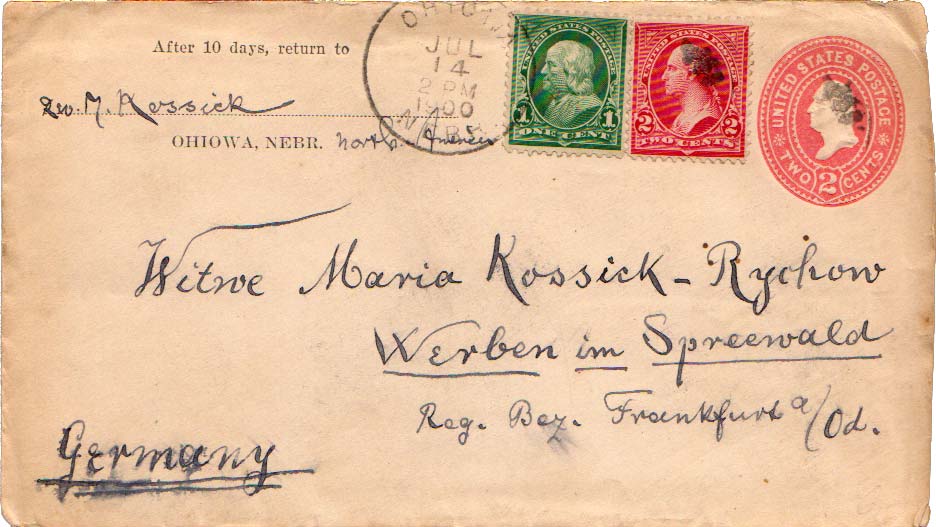 After 10 days, return to
M. Kossick
OHIOWA, NEBR. North America
OHIOWA
JUL
14
2 PM
1900
NEBR.
UNITED STATES POSTAGE
1 1
ONE CENT
UNITED STATES POSTAGE
2 2
TWO CENTS
UNITED STATES POSTAGE
TWO 2 CENTS
Witwe Maria Kossick - Rychow
Werben im Spreewald
Reg. Bez. Frankfurt a/Od.
Germany